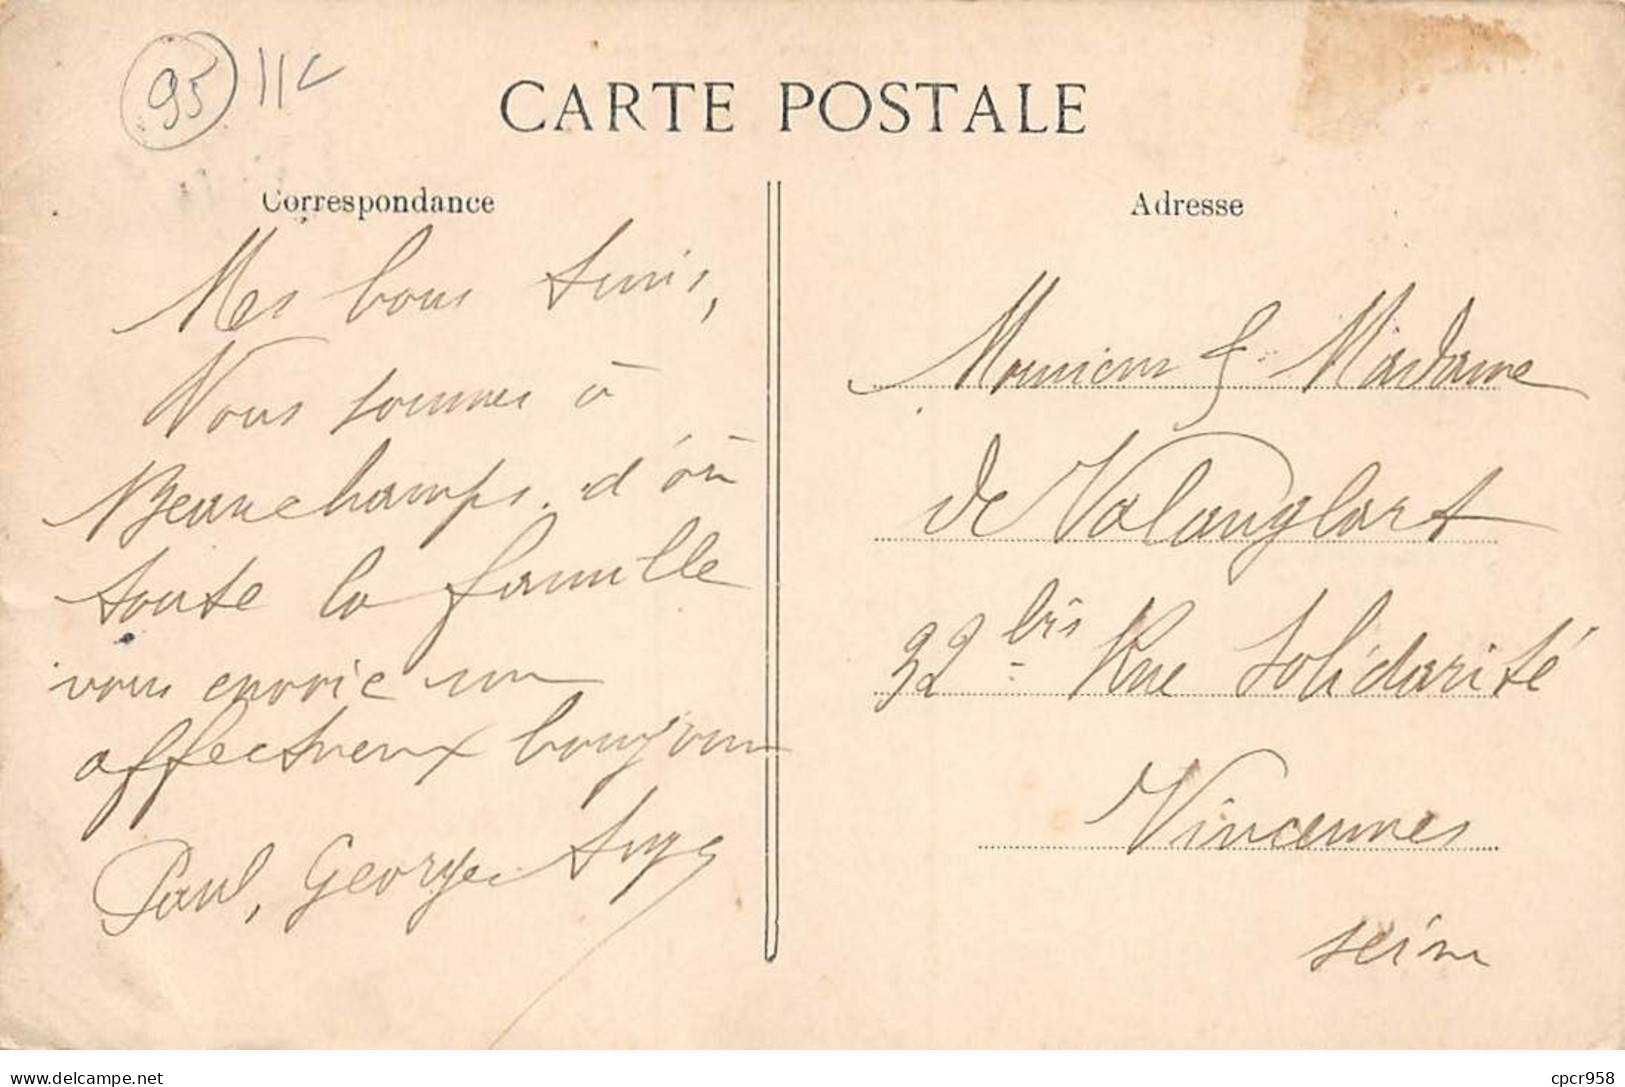 95 11C
CARTE POSTALE
Correspondance
Mes bons Amis,
Nous sommes à
Beauchamps. d'où
toute la famille
vous envoie un
affectueux bonjour
Paul, Georges
Adresse
Monsieur & Madame
de Valanglart
32 bis Rue Solidarité
Vincennes
Seine
delcampe.net
cpcr958